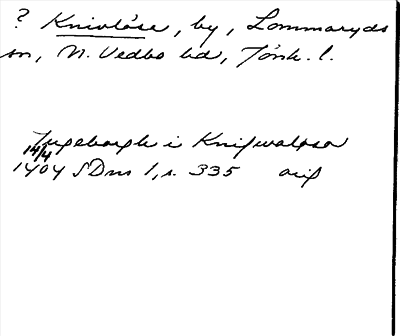 ? Knivlåse, by, Lommaryds
sn, N. Vedbo hd, Jönk. l.
Ingeborgh i Knifwalosa
14/4
1404 SDns 1, s. 335 orig